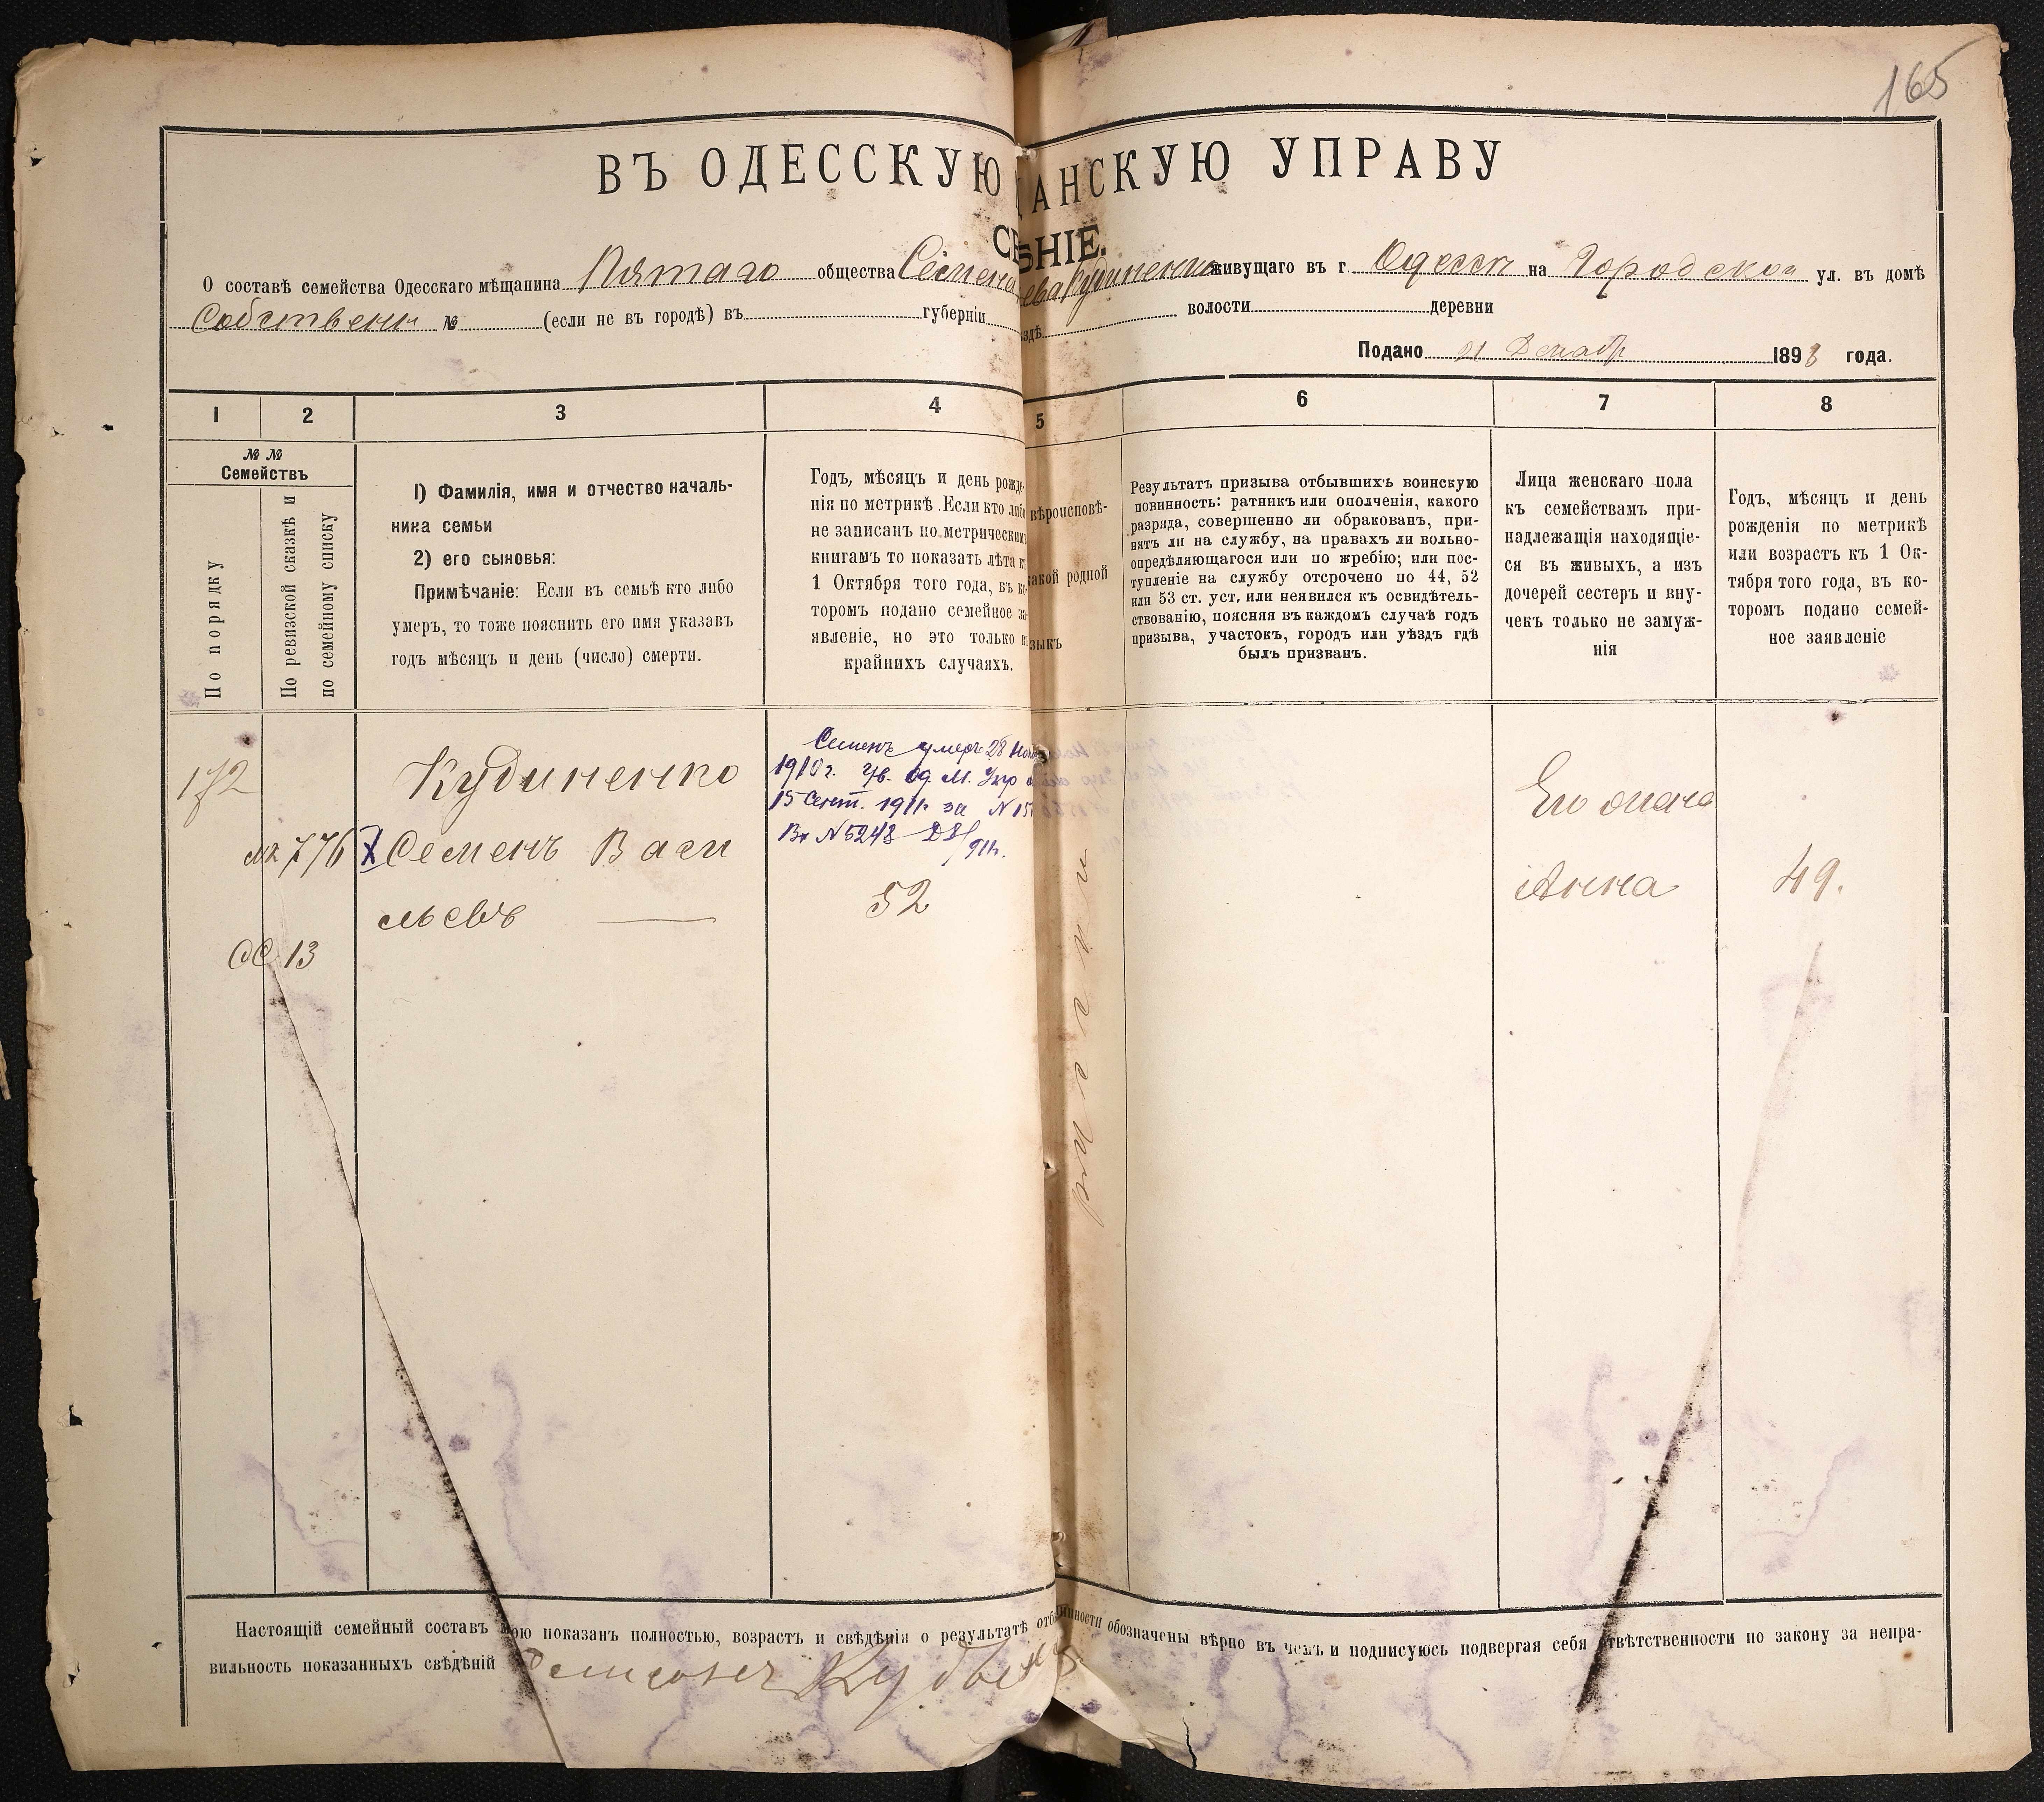 165
ВЪ ОДЕССКУЮ ЩАНСКУЮ УПРАВУ
СВ ѢНІЕ.
О составѣ семейства Одесскаго мѣщанина Пятаго общества Семена ева Кудиненко живущаго въ г. Одессѣ на Городской ул. въ домѣ
Собственн № (если не въ городѣ) въ губерніи здѣ волости деревни
Подано 21 Декабр 1893 года.
1 2 3 4 5 6 7 8
№ №
Семействъ
По порядку
По ревизской сказкѣ и
по семейному списку
1) Фамилія, имя и отчество началь-
ника семьи
2) его сыновья:
Примѣчаніе: Если въ семьѣ кто либо
умеръ, то тоже пояснить его имя указавъ
годъ мѣсяцъ и день (число) смерти.
Годъ, мѣсяцъ и день рожде-
нія по метрикѣ. Если кто либо
не записанъ по метрическим
книгамъ то показать лѣта къ
1 Октября того года, въ ко-
торомъ подано семейное за-
явленіе, но это только въ
крайнихъ случаяхъ.
вѣроисповѣ-
какой родной
зыкъ
Результатъ призыва отбывшихъ воинскую
повинность: ратникъ или ополченія, какого
разряда, совершенно ли обракованъ, при-
нятъ ли на службу, на правахъ ли вольно-
опредѣляющагося или по жребію; или пос-
тупленіе на службу отсрочено по 44, 52
или 53 ст. уст. или неявился къ освидѣтель-
ствованію, поясняя въ каждомъ случаѣ годъ
призыва, участокъ, городъ или уѣздъ гдѣ
былъ призванъ.
Лица женскаго пола
къ семействамъ при-
надлежащія находящіе-
ся въ живыхъ, а изъ
дочерей сестеръ и вну-
чекъ только не замуж-
нія
Годъ, мѣсяцъ и день
рожденія по метрикѣ
или возрастъ къ 1 Ок-
тября того года, въ ко-
торомъ подано семей-
ное заявленіе
172
776
13
Кудиненко
Семенъ Васи
льевъ
Семенъ умеръ 28 Нояб
1910 г. Ув. Од. М. Упр
15 Сент. 1911 за N 15
Вх N 5248
911.
52
Его жена
Анна
49.
Настоящій семейный составъ мою показанъ полностью, возрастъ и свѣдѣнія о результатѣ отб инности обозначены вѣрно въ чемъ и подписуюсь подвергая себя отвѣтственности по закону за непра-
вильность показанныхъ свѣдѣній